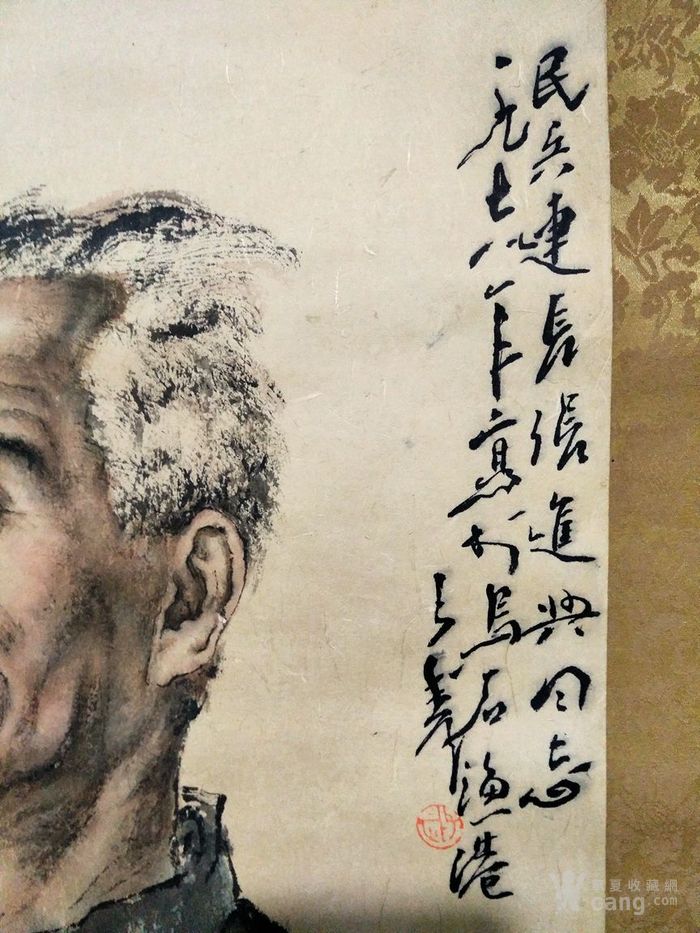 民兵連長張進興同志
一九七八年寫於烏石漁港
華夏收藏網
cang.com